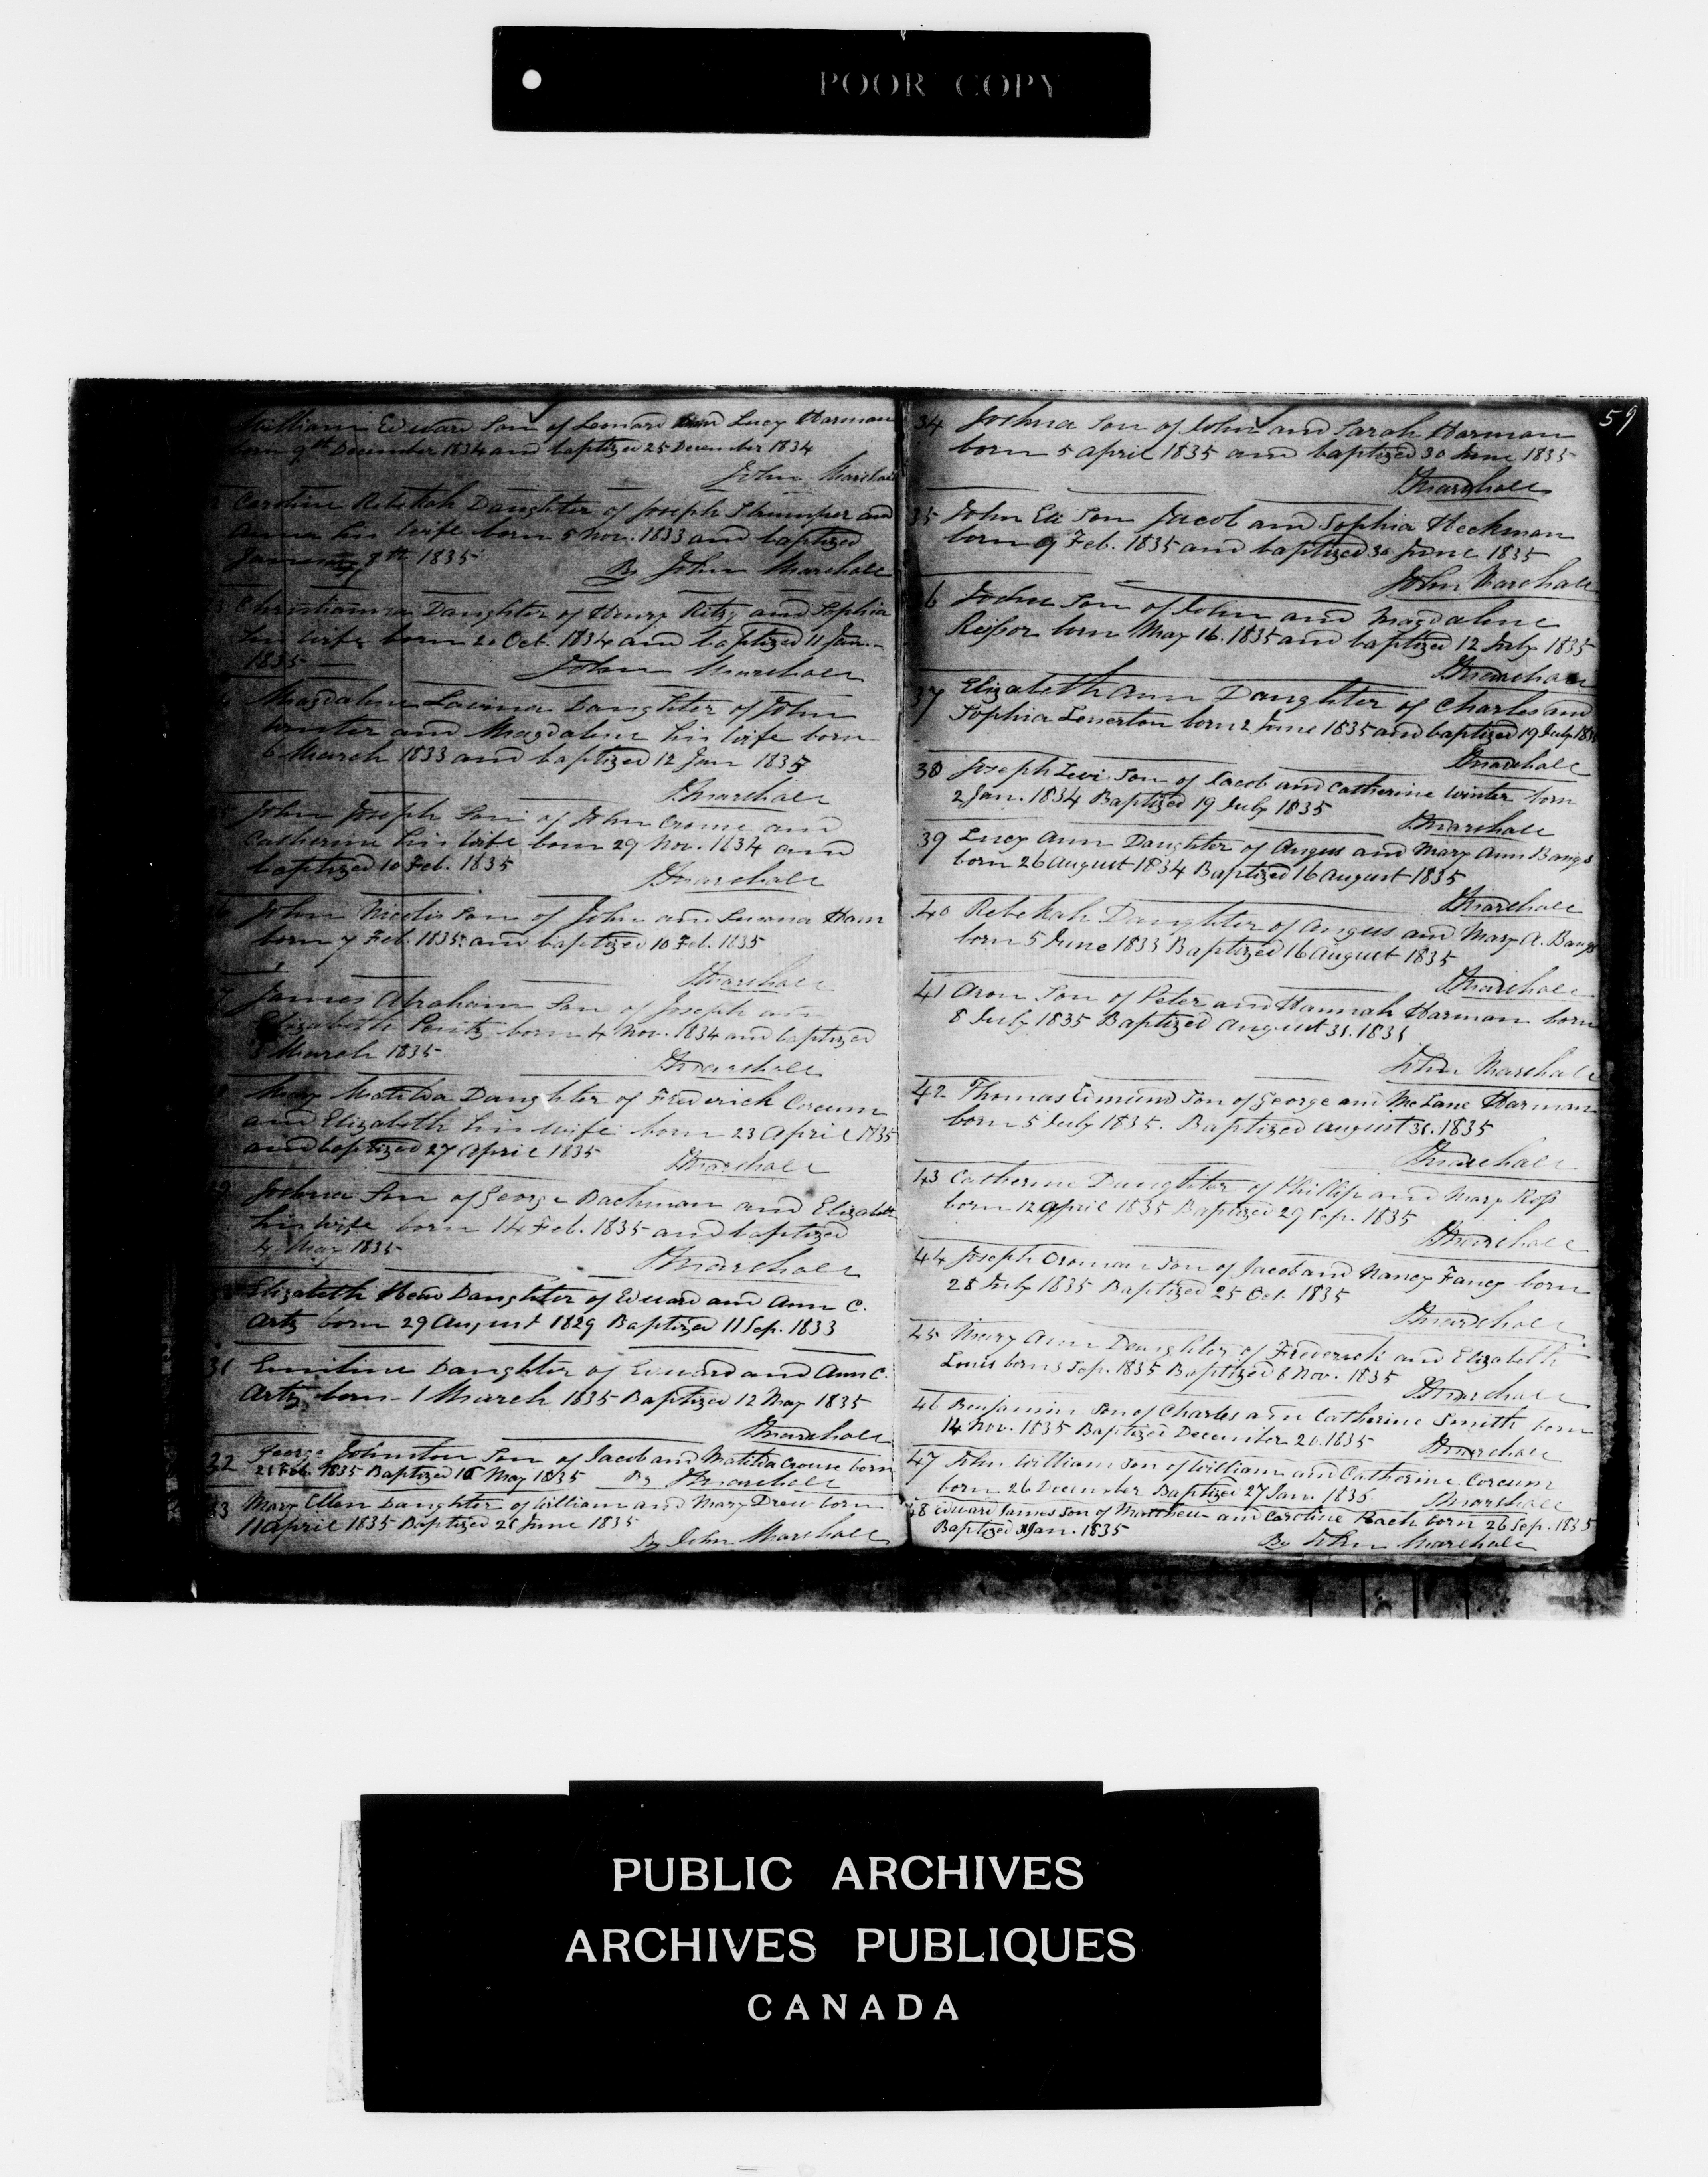 POOR COPY
William Edward Son of Lennard and Lucy Harman
born 9th December 1834 and baptized 25 December 1834
John Marshall
Caroline Rebekah Daughter of Joseph and
Anna his wife born 5 Nov. 1833 and baptized
January 8th 1835
By John Marshall
Christianna Daughter of Henry Ritzy and Sophia
his wife born 20 Oct. 1834 and baptized 11 Jan.
1835 —
John Marshall
Magdalene Lavina Daughter of John
winter and Magdalene his wife born
6 March 1833 and baptized 12 Jan 1835
J Marshall
John Joseph Son of John Crouse and
Catherine his wife born 29 Nov. 1834 and
baptized 10 Feb. 1835
J Marshall
John Son of John and Susana Ham
born 7 Feb. 1835 and baptized 10 Feb. 1835
J Marshall
James Abraham Son of Joseph and
Elizabeth Pentz born 4 Nov. 1834 and baptized
3 March 1835
J Marshall
Mary Matilda Daughter of Frederick Corcum
and Elizabeth his wife born 23 April 1835
and baptized 27 April 1835
J Marshall
Joshua Son of George Bachman and Elizabeth
his wife born 14 Feb. 1835 and baptized
4 May 1835
J Marshall
Elizabeth Daughter of Edward and Ann C.
Artz born 29 August 1829 Baptized 11 Sep. 1833
31 Emiline Daughter of Edward and Ann C.
Artz born 1 March 1835 Baptized 12 May 1835
J Marshall
32 George Johnston Son of Jacob and Matilda Crouse born
Feb. 1835 Baptized May 1835 By J Marshall
33 Mary Ellen Daughter of William and Mary Drew born
11 April 1835 Baptized 28 June 1835
By John Marshall
59
34 Joshua Son of John and Sarah Harman
born 5 april 1835 and baptized 30 June 1835
J Marshall
35 John Eli Son Jacob and Sophia Heckman
born 9 Feb. 1835 and baptized 30 June 1835
John Marshall
6 John Son of John and Magdalene
Reißor born May 16. 1835 and baptized 12 July 1835
J Marshall
37 Elizabeth Ann Daughter of Charles and
Sophia Lenerton born 2 June 1835 and baptized 19 July 1835
J Marshall
38 Joseph Levi Son of Jacob and Catherine winter born
2 Jan. 1834 Baptized 19 July 1835
J Marshall
39 Lucy Ann Daughter of Angus and Mary Ann Bangs
born 26 August 1834 Baptized 16 August 1835
J Marshall
40 Rebekah Daughter of Angus and Mary A. Bangs
born 5 June 1833 Baptized 16 August 1835
J Marshall
41 Aron Son of Peter and Hannah Harman born
8 July 1835 Baptized August 31. 1835
John Marshall
42 Thomas Edmund Son of George and Harman
born 5 July 1835. Baptized August 31. 1835
J Marshall
43 Catherine Daughter of Phillip and Mary Roß
born 12 April 1835 Baptized 29 Sep. 1835
J Marshall
44 Joseph Son of Jacob and Nancy Fancy born
28 July 1835 Baptized 25 Oct. 1835
J Marshall
45 Mary Ann Daughter of Frederick and Elizabeth
Louis born 3 Sep. 1835 Baptized 8 Nov. 1835
J Marshall
46 Benjamin Son of Charles and Catherine Smith born
14 Nov. 1835 Baptized December 20. 1835
J Marshall
47 John William Son of William and Catherine Corcum
born 26 December Baptized 27 Jan. 1836.
J Marshall
48 Edward James Son of Matthew and Caroline Rach born 26 Sep. 1835
Baptized Jan. 1835
By John Marshall
PUBLIC ARCHIVES
ARCHIVES PUBLIQUES
CANADA